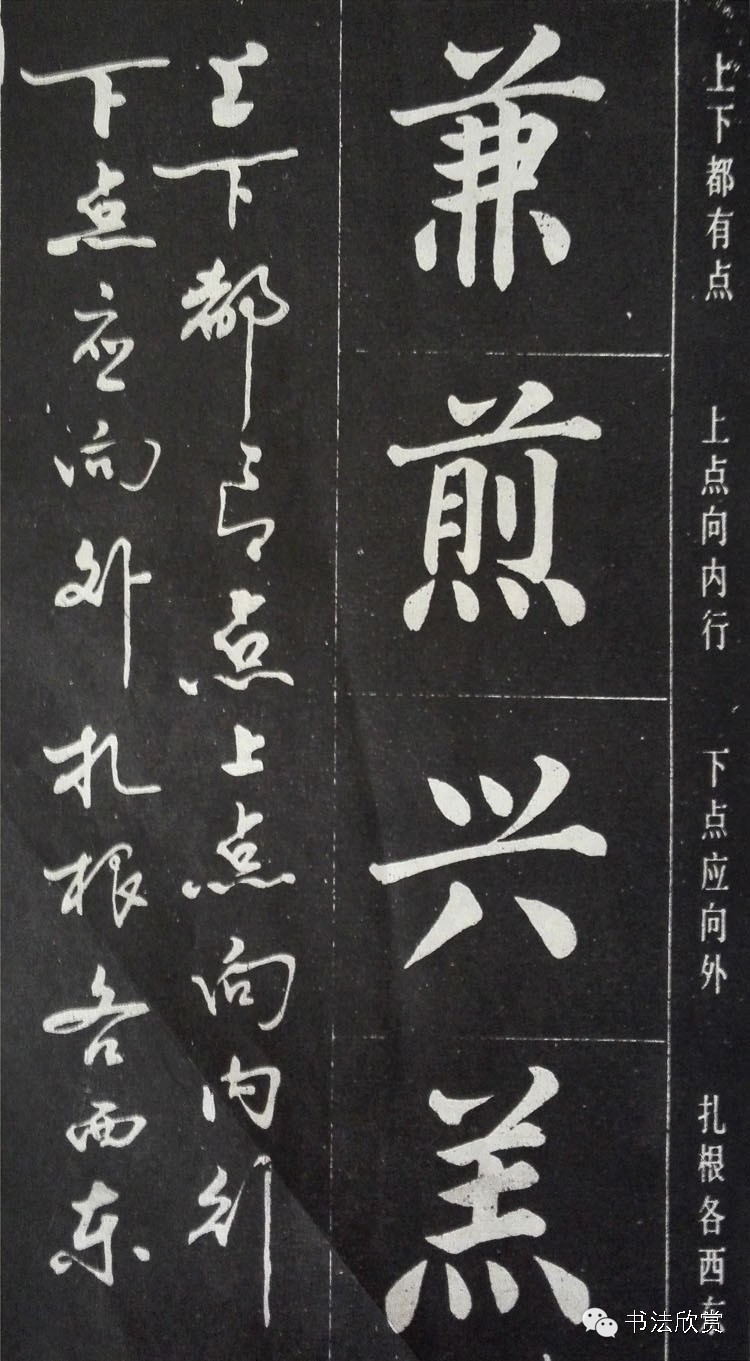 上下都有点 上点向内行 下点应向外 扎根各西东
兼
煎
兴
羔
上下都有点上点向内行
下点应向外扎根各西东
书法欣赏